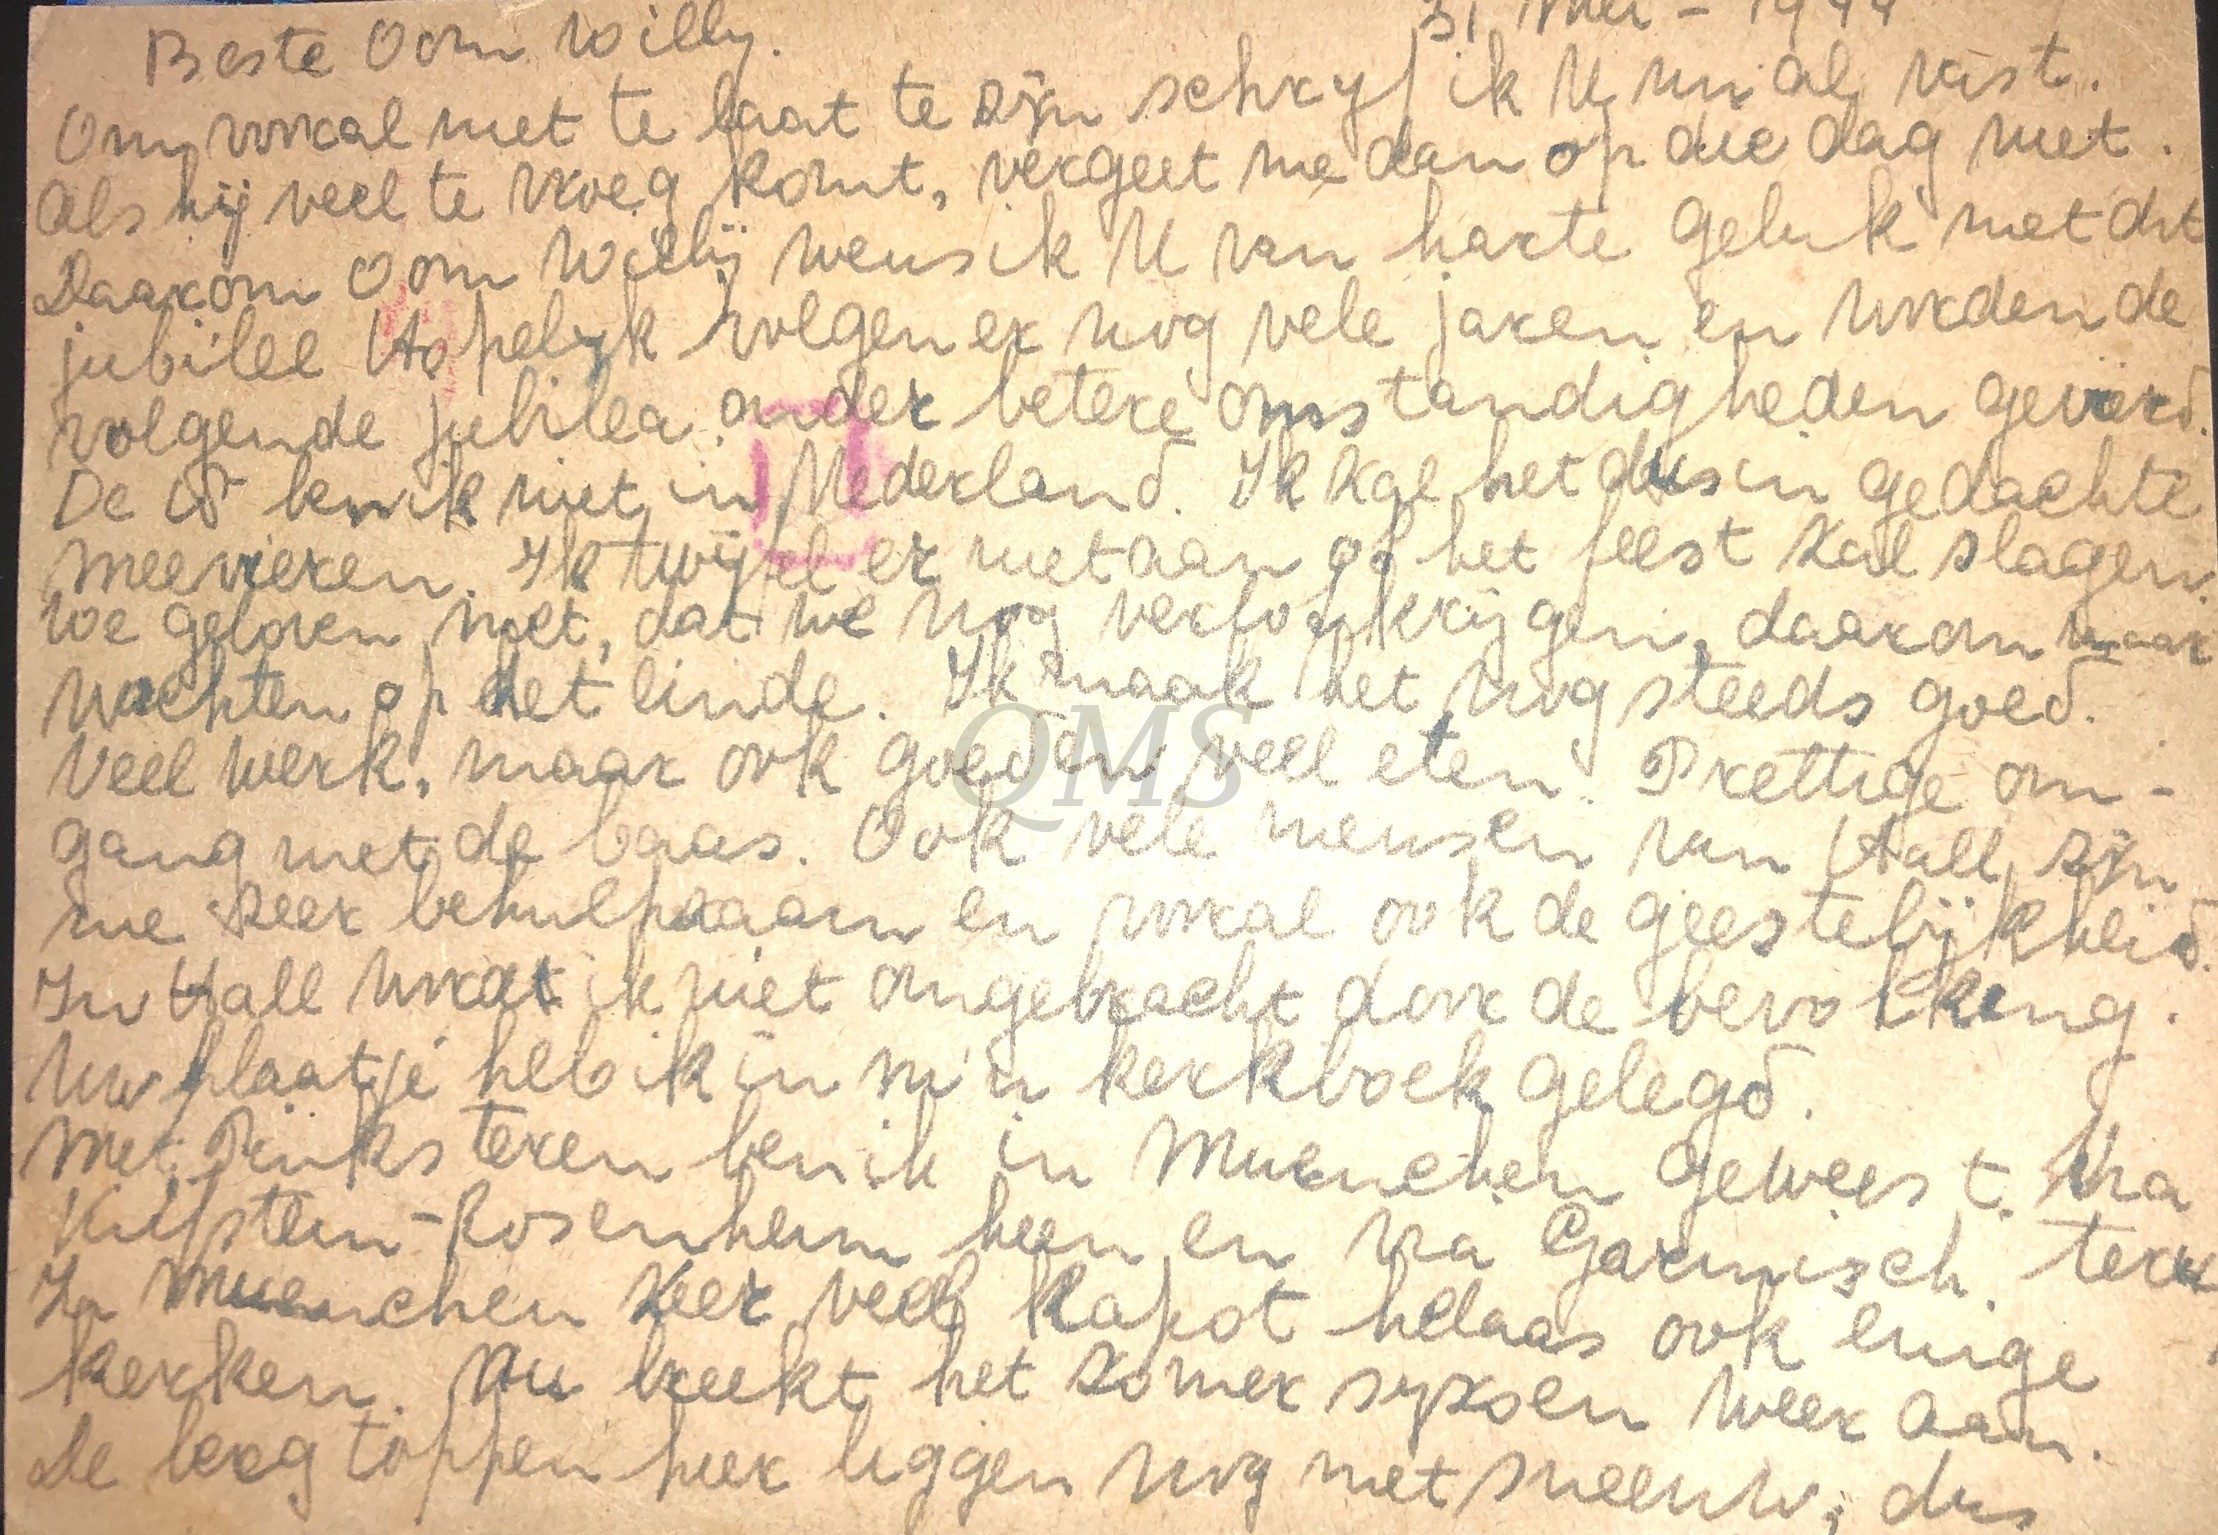 31 Mei - 1944
Beste Oom Willy.
Om vooral niet te laat te zijn schryf ik U nu al vast.
Als hij veel te vroeg komt, vergeet me dan op die dag niet.
Daarom Oom Willij wens ik U van harte geluk met dit
jubilee Hopelyk volgen er nog vele jaren en worden de
volgende jubilea onder betere omstandigheden gevierd.
De ben ik niet in Nederland. Ik zal het dus in gedachte
meevieren. Ik twijfel er niet aan of het feest zal slagen.
We geloven niet, dat we nog verlof krijgen, daarom maar
wachten op het einde. Ik maak het nog steeds goed.
Veel werk, maar ook goed en veel eten. Prettige om-
gang met de baas. Ook vele mensen van Hall zijn
me zeer behulpzaam en vooral ook de geestelijkheid.
In Hall wordt ik niet omgebracht door de bevolking.
Uw plaatje heb ik in m'n kerkboek gelegd.
Met Pinksteren ben ik in Muenchen geweest. Via
Kufstein-Rosenheim heen en via Garmisch. teru
In Muenchen zeer veel kapot helaas ook enige
kerken. Nu breekt het zomer syzoen weer aan.
De berg toppen hier liggen nog met sneeuw, dus
QMS